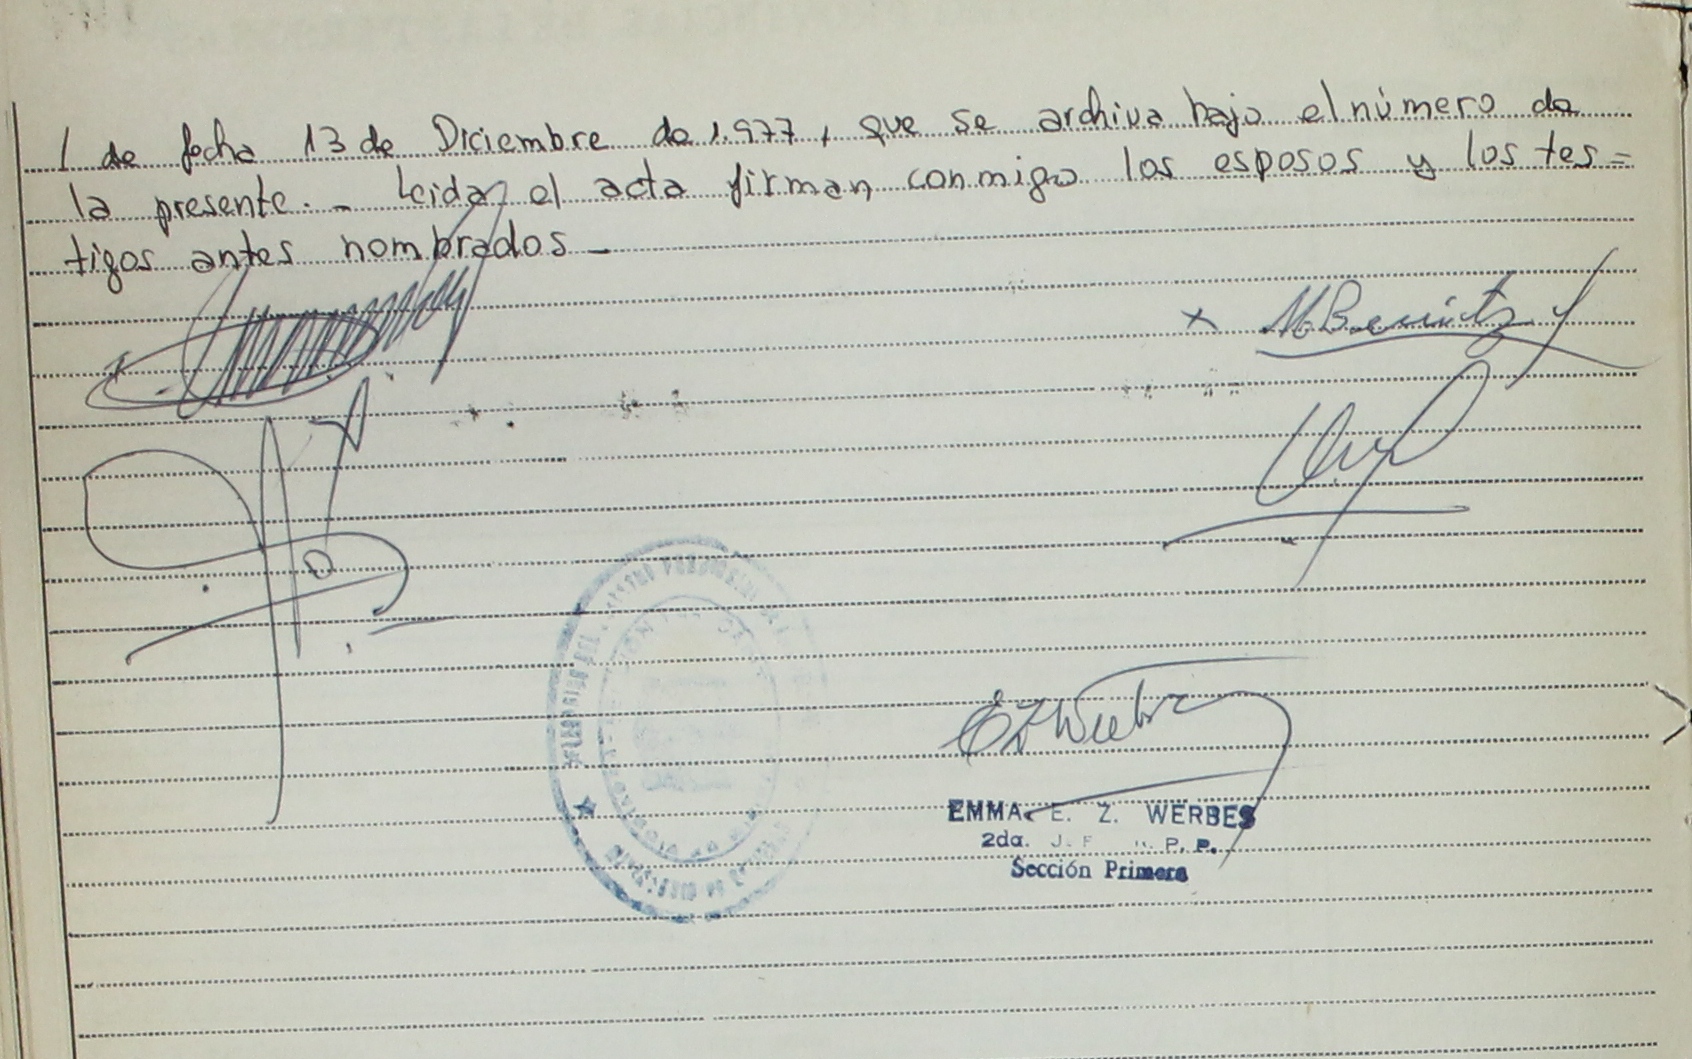 / de fecha 13 de Diciembre de 1.977, que se archiva bajo el número de
la presente._ Leida el acta firman conmigo los esposos y los tes=
tigos antes nombrados_
x M. Benitz
EMMA E. Z. WERBES
2da. J. F. P. P.
Sección Primera